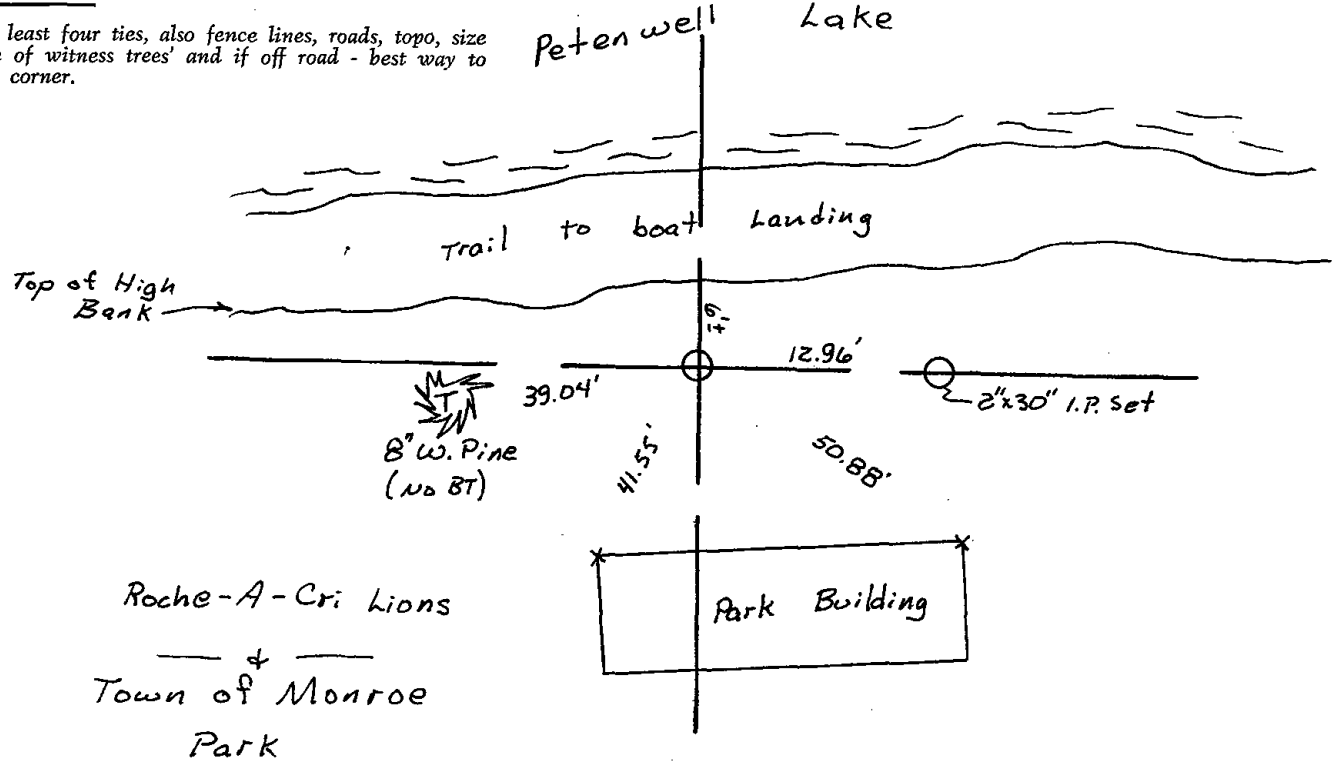 least four ties, also fence lines, roads, topo, size
of witness trees' and if off road - best way to
corner.
Petenwell Lake
Trail to boat Landing
Top of High
Bank
6'±
12.96'
39.04'
2"x30" I.P. Set
T
8" W. Pine
(No BT)
41.55'
50.88'
Park Building
Roche-A-Cri Lions
&
Town of Monroe
Park